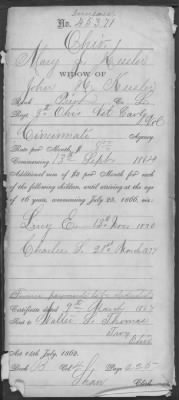 Increase.
No. 45371
Ohio
Mary J. Keeler
WIDOW OF
John H. Keeler
Rank Priv Co. L.
Regt. 9" Ohio Vet Cavy Vol
Cincinnati Agency
Rate per Month, $ 8.00
Commencing 13th Sept. 1864
Additional sum of $2 per Month for each
of the following children, until arriving at the age
of 16 years, commencing July 25, 1866, viz:
Lucy E. 13th Nov. 1870
Charles F. 21st March 1877
Certificate dated 9th March 1867
Sent to Walter S. Thomas
Troy
Ohio
Act 14th July, 1862.
Book B Vol. 4 Page 225
Shaw Clerk.